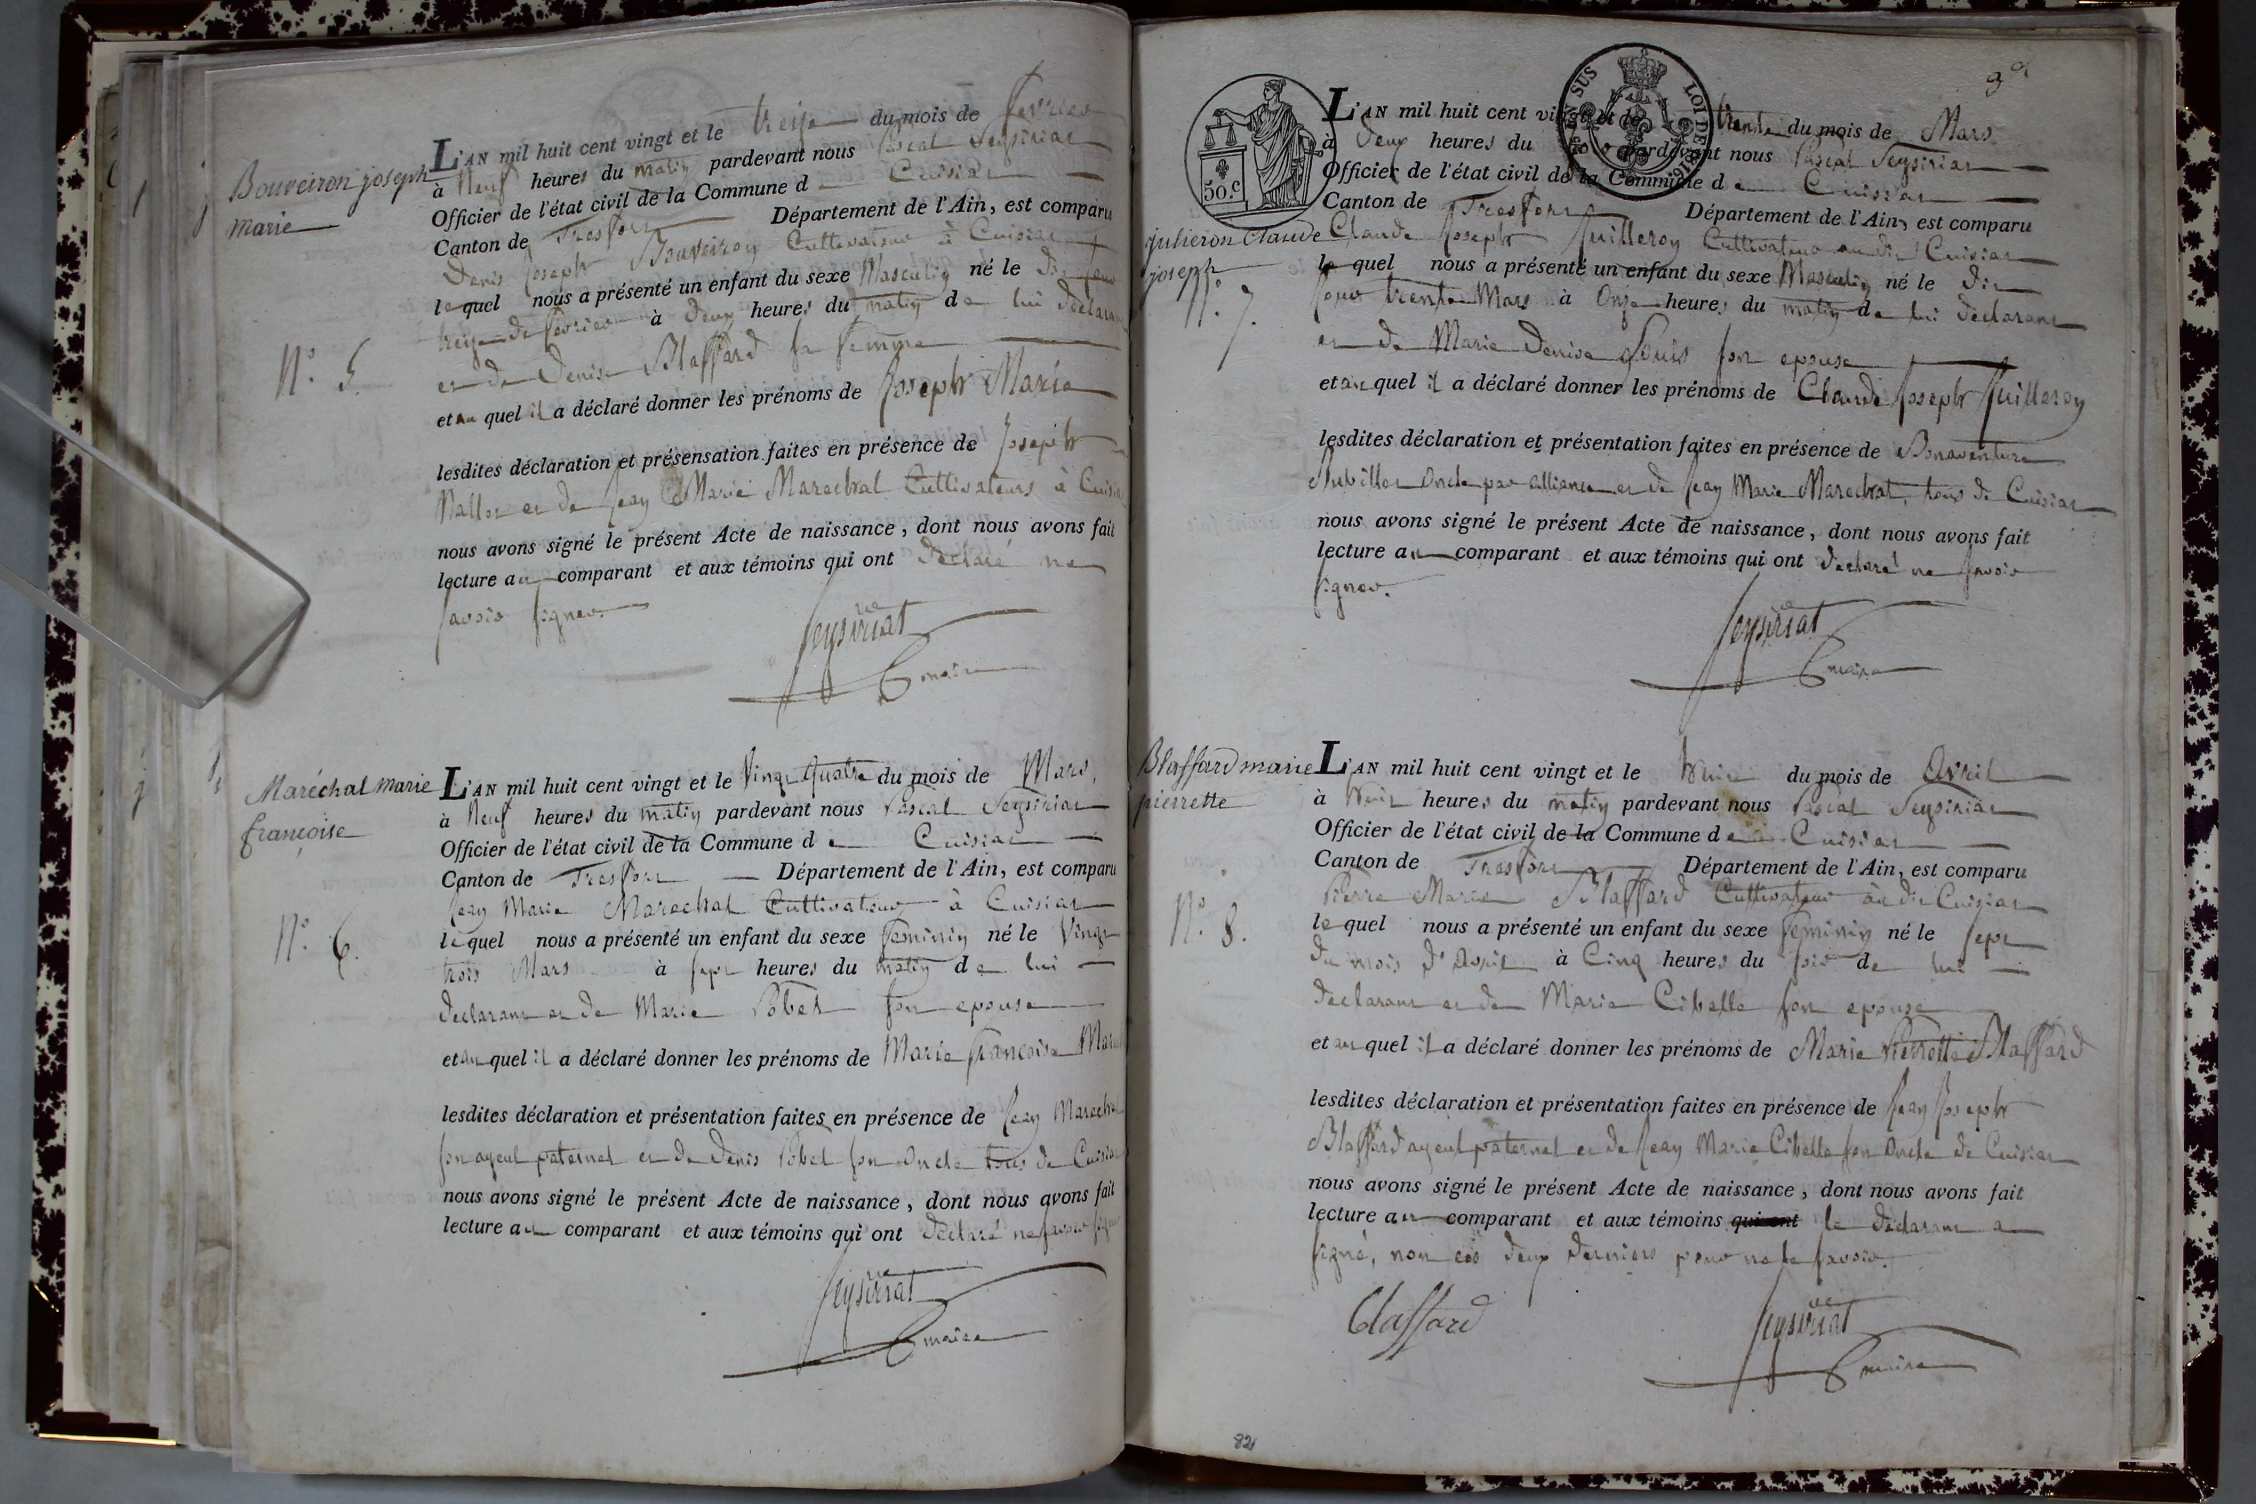 Bouveiron joseph
marie
N.° 5.
L'AN mil huit cent vingt et le treize du mois de fevrier
à Neuf heures du matin pardevant nous Pascal Seysiriat
Officier de l'état civil de la Commune de Cuisiat
Canton de Tresfort Département de l'Ain, est comparu
Denis Joseph Bouveiron Cultivateur à Cuisiat
lequel nous a présenté un enfant du sexe Masculin né le dit jour
treize de fevrier à deux heures du matin de lui déclarant
et de Denise Blaffard sa femme
et au quel il a déclaré donner les prénoms de Joseph Marie
lesdites déclaration et présensation faites en présence de Joseph
et de Jean Marie Marechal Cultivateurs à Cuisiat
nous avons signé le présent Acte de naissance, dont nous avons fait
lecture au comparant et aux témoins qui ont déclaré ne
savoir signer.
Seysiriat
maire
Maréchal marie
françoise
N.° 6.
L'AN mil huit cent vingt et le Vingt quatre du mois de Mars,
à Neuf heures du matin pardevant nous Pascal Seysiriat
Officier de l'état civil de la Commune de Cuisiat
Canton de Tresfort Département de l'Ain, est comparu
Jean Marie Marechal Cultivateur à Cuisiat
lequel nous a présenté un enfant du sexe feminin né le Vingt
trois Mars à sept heures du matin de lui
déclarant et de Marie Pobel son epouse
et au quel il a déclaré donner les prénoms de Marie françoise
lesdites déclaration et présentation faites en présence de Jean Marechal
son ayeul paternel et de Denis Pobel son Oncle tous de Cuisiat
nous avons signé le présent Acte de naissance, dont nous avons fait
lecture au comparant et aux témoins qui ont déclaré ne savoir signer
Seysiriat
maire
50.c
EN SUS
LOI DE 1816
julieron Claude
joseph
N.° 7.
L'AN mil huit cent vingt et le trente du mois de Mars
à Deux heures du pardevant nous Pascal Seysiriat
Officier de l'état civil de la Commune de Cuisiat
Canton de Tresfort Département de l'Ain, est comparu
Claude Joseph Juilleron Cultivateur au dit Cuisiat
le quel nous a présenté un enfant du sexe Masculin né le Dit
jour trente Mars à Onze heures du matin de lui déclarant
et de Marie Denise Louis son epouse
et au quel il a déclaré donner les prénoms de Claude Joseph Juilleron
lesdites déclaration et présentation faites en présence de Bonaventure
Oncle par alliance et de Jean Marie Marechal, tous de Cuisiat
nous avons signé le présent Acte de naissance, dont nous avons fait
lecture au comparant et aux témoins qui ont déclaré ne savoir
signer.
Seysiriat
maire
Blaffard marie
pierrette
N.° 8.
L'AN mil huit cent vingt et le huit du mois de Avril
à huit heures du matin pardevant nous Pascal Seysiriat
Officier de l'état civil de la Commune de Cuisiat
Canton de Tresfort Département de l'Ain, est comparu
Pierre Marie Blaffard Cultivateur au dit Cuisiat
le quel nous a présenté un enfant du sexe feminin né le sept
du mois d'Avril à Cinq heures du soir de lui
déclarant et de Marie Cibelle son epouse
et au quel il a déclaré donner les prénoms de Marie Pierrette Blaffard
lesdites déclaration et présentation faites en présence de Jean Joseph
Blaffard ayeul paternel et de Jean Marie Cibelle son Oncle de Cuisiat
nous avons signé le présent Acte de naissance, dont nous avons fait
lecture au comparant et aux témoins qui ont le déclarant a
signé, non ces deux derniers pour ne le savoir.
Blaffard
Seysiriat
maire
82